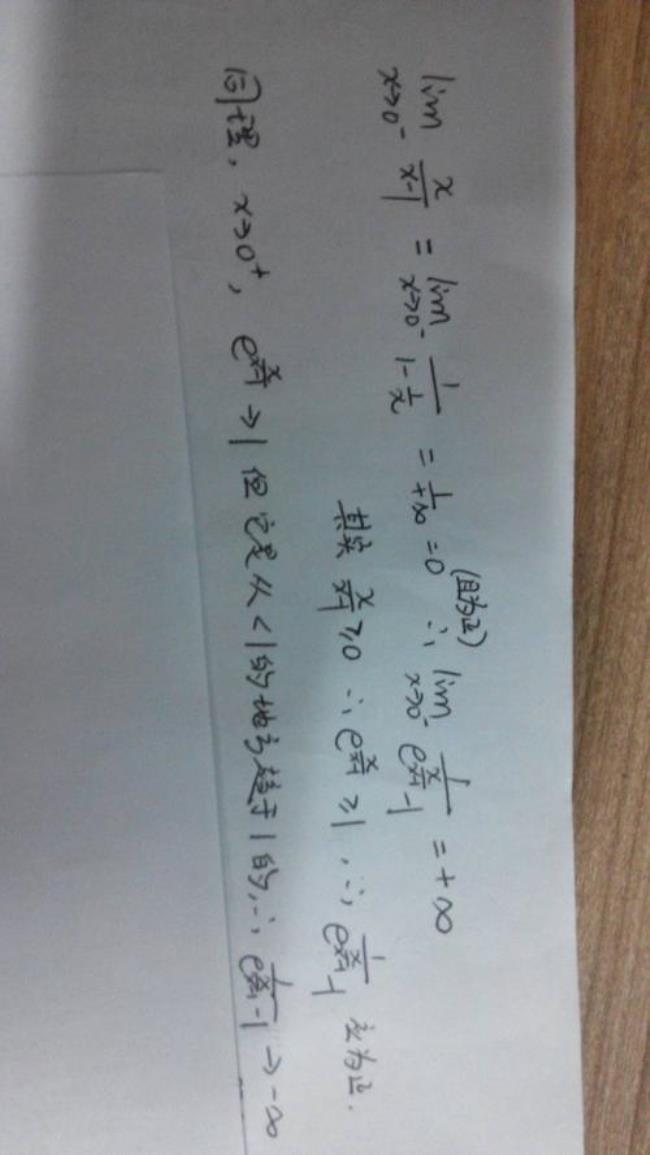 lim x→0⁻ x/(x-1) = lim x→0⁻ 1/(1-1/x) = 1/+∞ = 0 (且为正) ∴ lim x→0⁻ 1/(e^(x/(x-1))-1) = +∞
其实 x/(x-1) ≥0 ∴ e^(x/(x-1)) ≥1, ∴ 1/(e^(x/(x-1))-1) 应为正.
同理, x→0⁺, e^(x/(x-1)) →1 但它是从<1的地方趋于1的, ∴ 1/(e^(x/(x-1))-1) → -∞